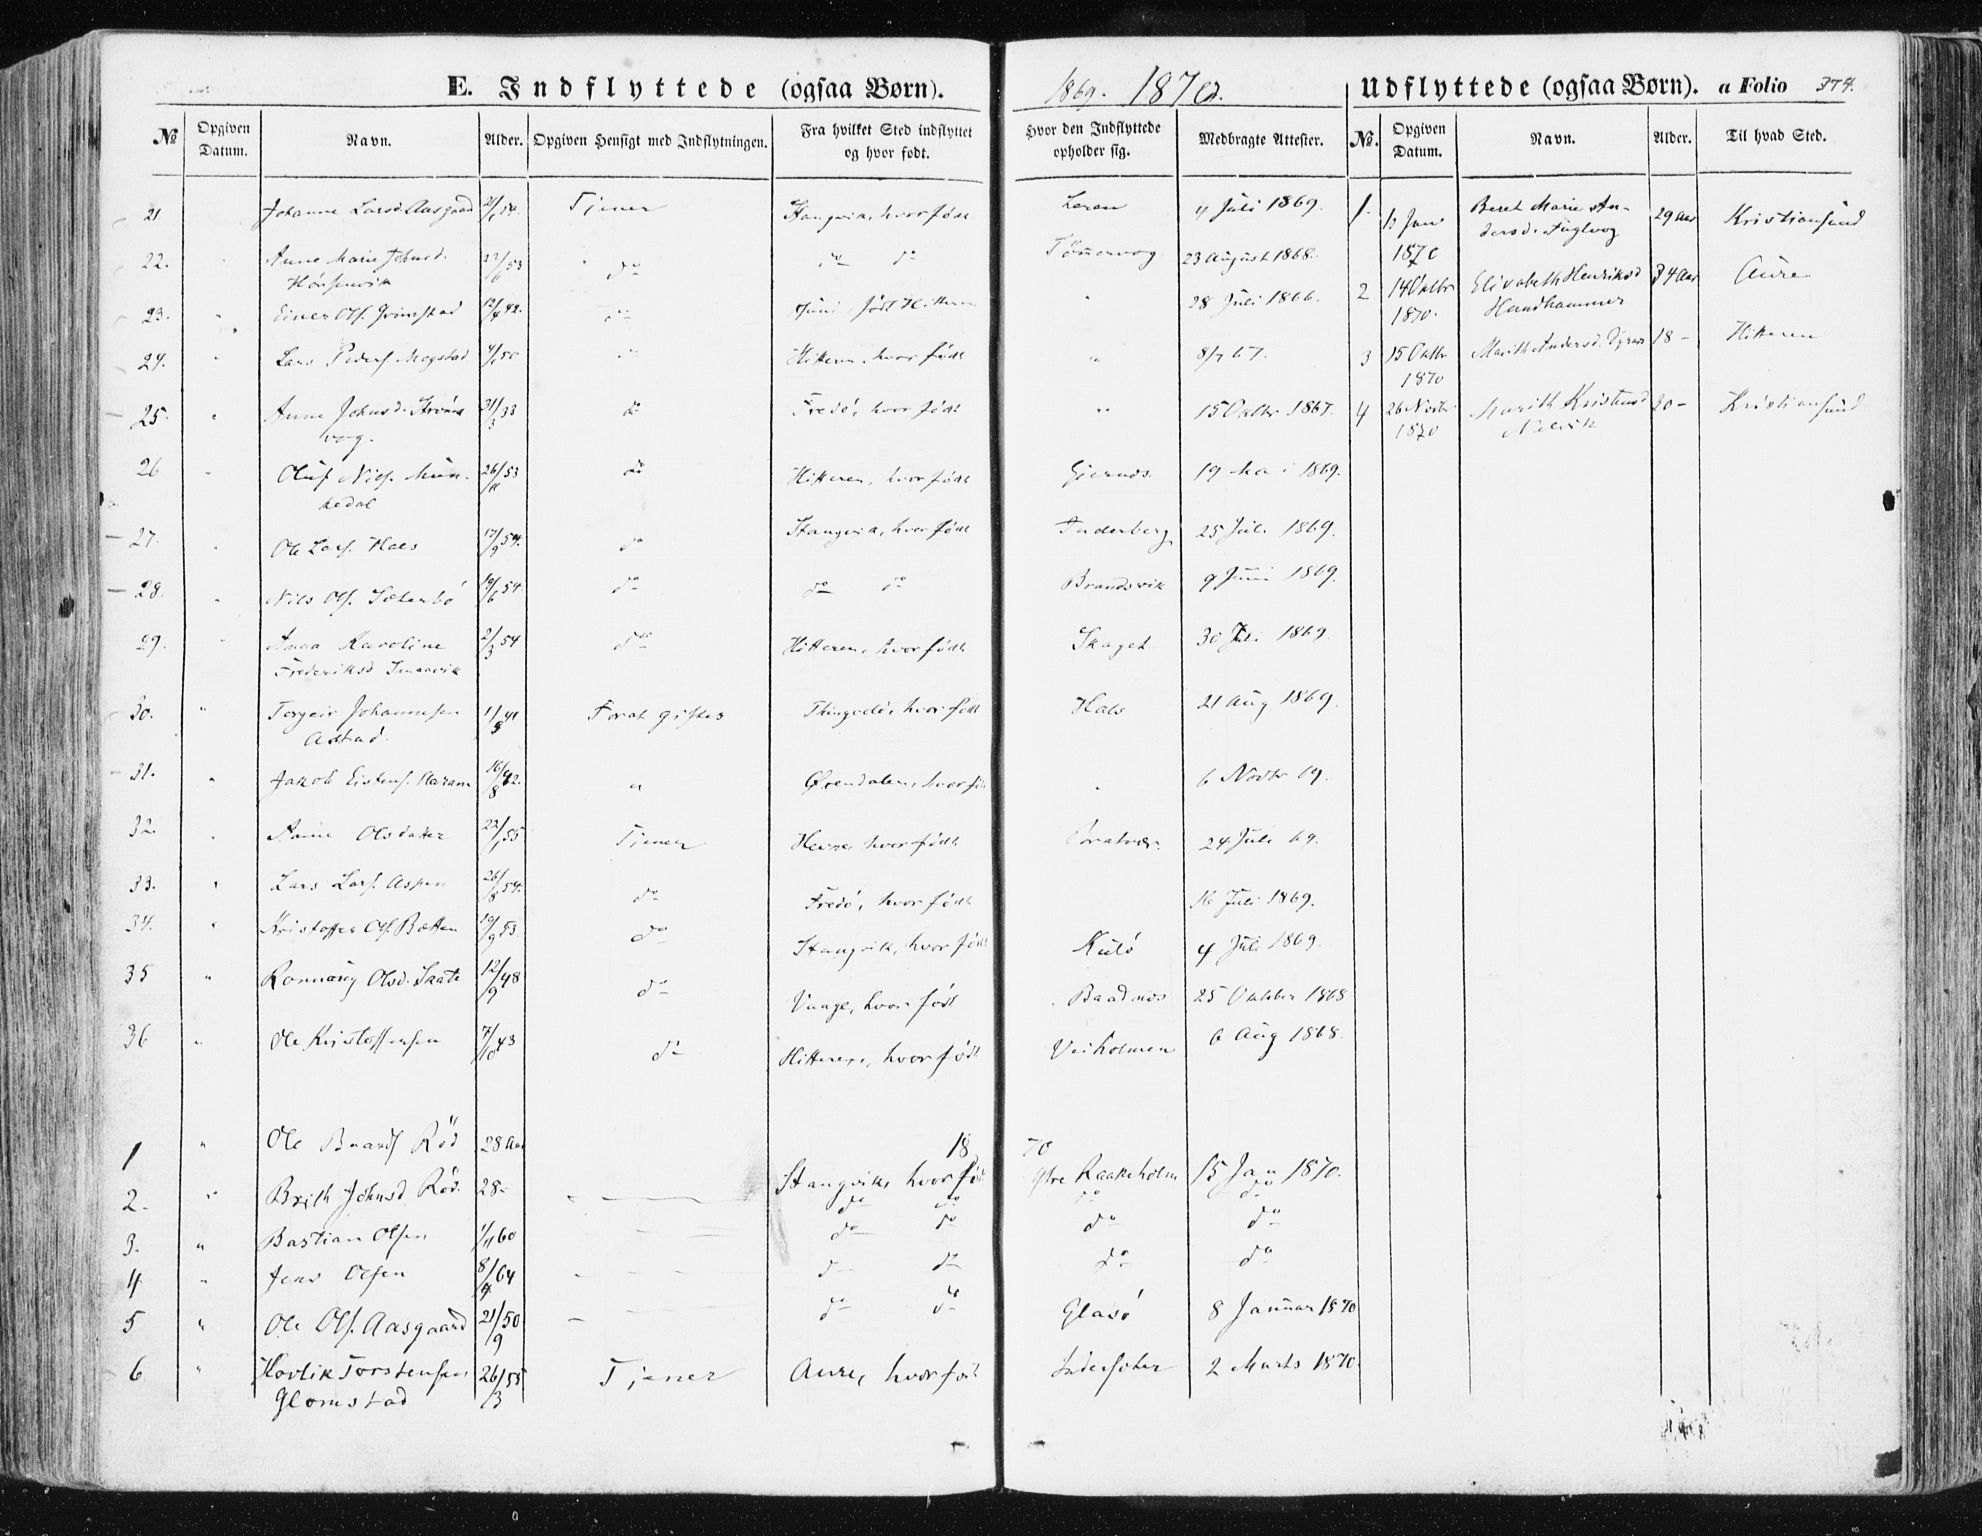 E. Indflyttede (ogsaa Børn). 1869. 1870. Udflyttede (ogsaa Børn). a Folio 374.
№ Opgiven Datum. Navn. Alder. Opgiven Hensigt med Indflytningen. Fra hvilket Sted indflyttet og hvor født. Hvor den Indflyttede opholder sig. Medbragte Attester.
№. Opgiven Datum. Navn. Alder. Til hvad Sted.
21 Johanne Larsd. Aasgaard Tjener Stangvik, hvor født Leren 4 Juli 1869.
22. Anne Marie Johnsd. 22/6 53 do do do 23 August 1868.
23. " Einer Ols. Grimstad 12/4 42. do født Hitteren " 28 Juli 1866.
24. " Lars Peders. Magstad do Hitteren, hvor født " 8/7 67.
25. " Anne Johnsd. Strøms-
vog. 31/3 33 do Fredø, hvor født " 15 Oktbr 1867.
26 " Oluf Niels. Mun-
kedal 26/11 53 do Hitteren, hvor født Gjernæs 19 Mai 1869.
27. " Ole Lars. Hals 17/9 54. do Stangvik, hvor født Inderberg 25 Juli 1869.
28. " Nils Ols. Sæterbø 19/6 54. do do do Brandsvik 9 Juni 1869.
29. " Anna Karoline
Frederiksd 2/3 54 do Hitteren, hvor født Skaget 30 Juli 1869.
30. " Torgeir Johannesen 11/5 41 For at giftes Thingvold, hvor født Hals 21 Aug 1869.
31. " Jakob Eistens. Aaram 16/8 42. " Ørendalen, hvor født " 6 Novbr 69.
32. " Anne Olsdatter 22/1 55 Tjener Hevne, hvor født 24 Juli 69.
33. " Lars Lars. Aspen 26/8 54. do Fredø, hvor født 16 Juli 1869.
34. " Kristoffer Ols. Bætten 19/9 53 do Stangvik, hvor født Kulø 4 Juli 1869.
35 " Ronnaug Olsd. Saate 12/9 48 do Vaage, hvor født Baadnes 25 Oktober 1868
36 " Ole Kristoffersen 7/10 43 do Hitteren, hvor født Veiholmen 6 Aug 1868.
1870
1 " Ole Baards. Rød 28 Aar Stangvik, hvor født Ytre Raakeholm 15 Jan 1870.
2. " Brith Johnsd. Rød. 28- " do do do do
3. " Bastian Olsen 1/11 60 do do do do
4 " Jens Olsen 8/4 64 do do do do
5 " Ole Ols. Aasgaard 21/9 50 do do Glasø 8 Januar 1870
6 " Hovlik Torstensen
Glomstad 26/3 55 Tjener Aure, hvor født 2 Marts 1870.
1. 13 Jan
1870 Beret Marie An-
dersd. Fuglvog 29 Aar Kristiansund
2 14 Oktbr
1870. Elisabeth Henriksd
Hundhammer 34 Aar Aure
3 15 Oktbr
1870 Marith Andersd. 18 - Hitteren
4 26 Novbr
1870 Marith Kristensd
Nelvik 20 - Kristiansund